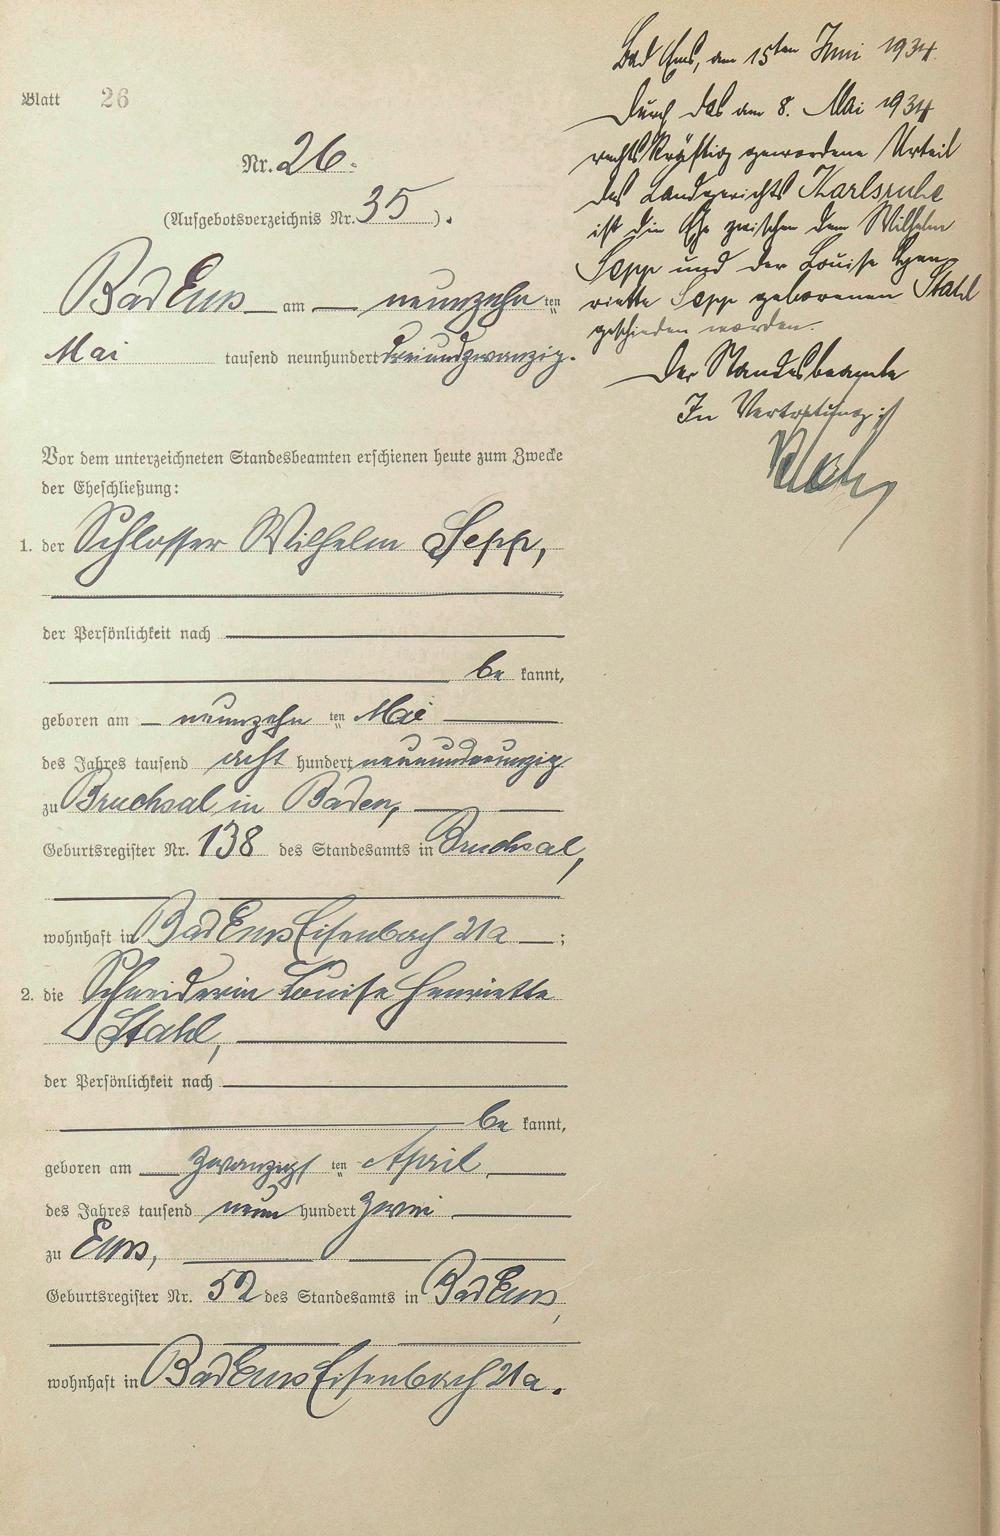 Blatt 26
Nr. 26.
(Aufgebotsverzeichnis Nr. 35).
Bad Ems am neunzehn ten
Mai tausend neunhundert dreiundzwanzig.
Vor dem unterzeichneten Standesbeamten erschienen heute zum Zwecke
der Eheschließung:
1. der Schlosser Wilhelm Sepp,
der Persönlichkeit nach
be kannt,
geboren am neunzehn ten Mai
des Jahres tausend acht hundert neunundneunzig
zu Bruchsal in Baden,
Geburtsregister Nr. 138 des Standesamts in Bruchsal,
wohnhaft in Bad Ems Eisenbach 21a ;
2. die Schneiderin Louise Henriette
Stahl,
der Persönlichkeit nach
be kannt,
geboren am zwanzigs ten April
des Jahres tausend neun hundert zwei
zu Ems,
Geburtsregister Nr. 52 des Standesamts in Bad Ems,
wohnhaft in Bad Ems Eisenbach 21a.
Bad Ems, am 15ten Juni 1934.
Durch das am 8. Mai 1934
rechtskräftig gewordene Urteil
des Landgerichts Karlsruhe
ist die Ehe zwischen dem Wilhelm
Sepp und der Louise Hen
riette Sepp geborenen Stahl
geschieden worden.
Der Standesbeamte
In Vertretung: